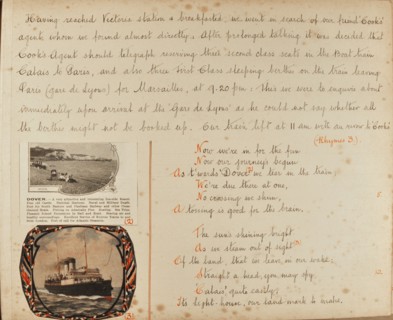 Having reached Victoria Station & breakfasted, we went in search of our friend Cook's
agent whom we found almost directly. After prolonged talking it was decided that
Cook's Agent should telegraph reserving three second class seats in the Boat train
Calais to Paris, and also three first class sleeping berths on the train leaving
Paris (gare de Lyons) for Marseilles, at 9.20 p.m. This we were to enquire about
immediately upon arrival at the "Gare de Lyons" as he could not say whether all
the berths might not be booked up. Our train left at 11 am with
(Rhymes 3)
Now we're in for the fun
Now our journey's begun
As t'wards "Dover" we tear in the train;
We're due there at one,
No crossing we shun,
A touring is good for the brain.
The sun's shining bright
As we steam out of sight
Of the land, that we leave in our wake;
Straight a head, you may spy
"Calais" quite easily;
Its light-house, our land mark to make.
DOVER.
(2)
(3)